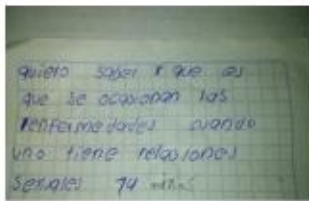 quiero saber x que es
que se ocasionan las
enfermedades cuando
uno tiene relasiones
sexsales 14